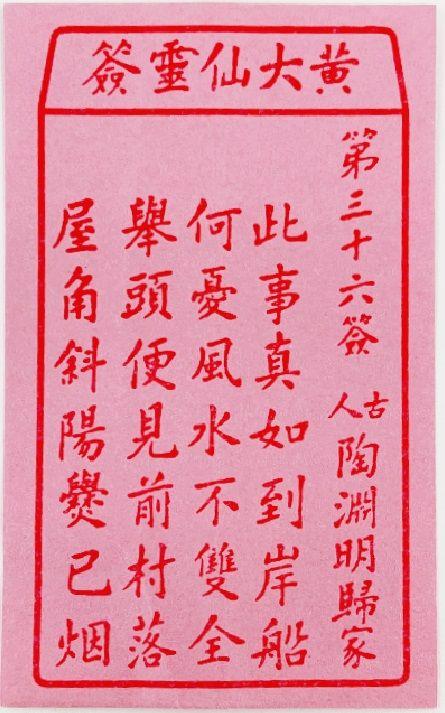 黃大仙靈簽
第三十六簽 古人陶淵明歸家
此事真如到岸船
何憂風水不雙全
舉頭便見前村落
屋角斜陽爨已烟